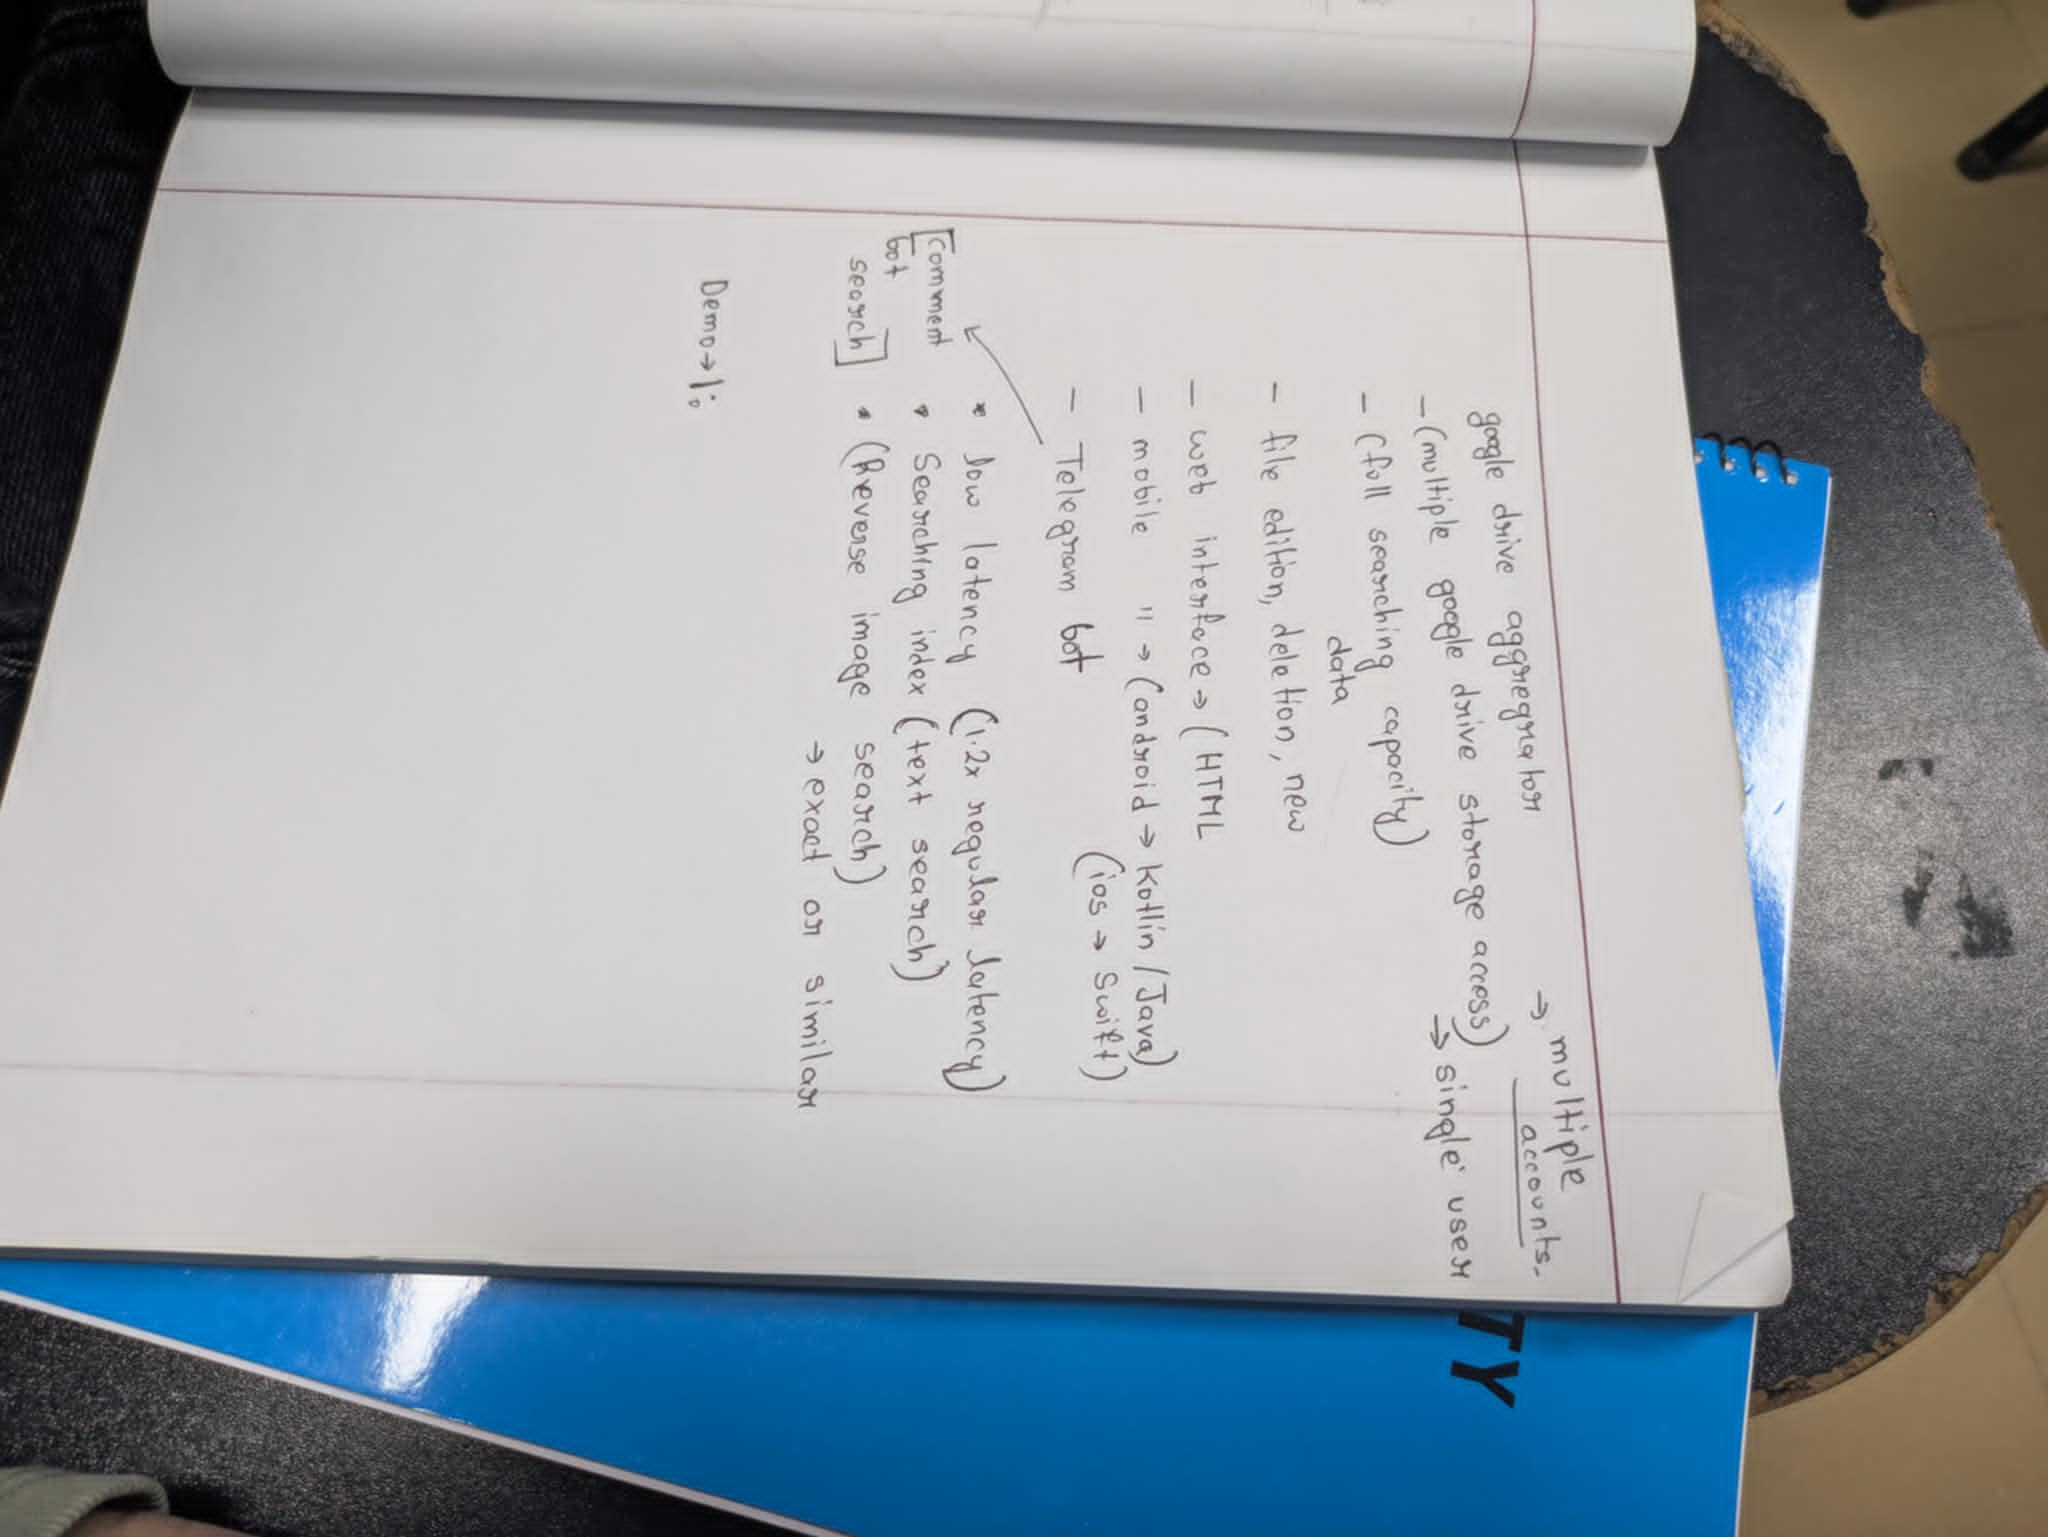 google drive aggregator → multiple
accounts.
- (multiple google drive storage access)
→ single user
- (full searching capacity)
data
- file edition, deletion, new
- web interface → (HTML
- mobile " → (android → kotlin / Java)
(ios → swift)
- Telegram bot
[comment
bot
search]
* low latency (1.2x regular latency)
• Searching index (text search)
• (Reverse image search)
→ exact or similar
Demo → 1:
TY